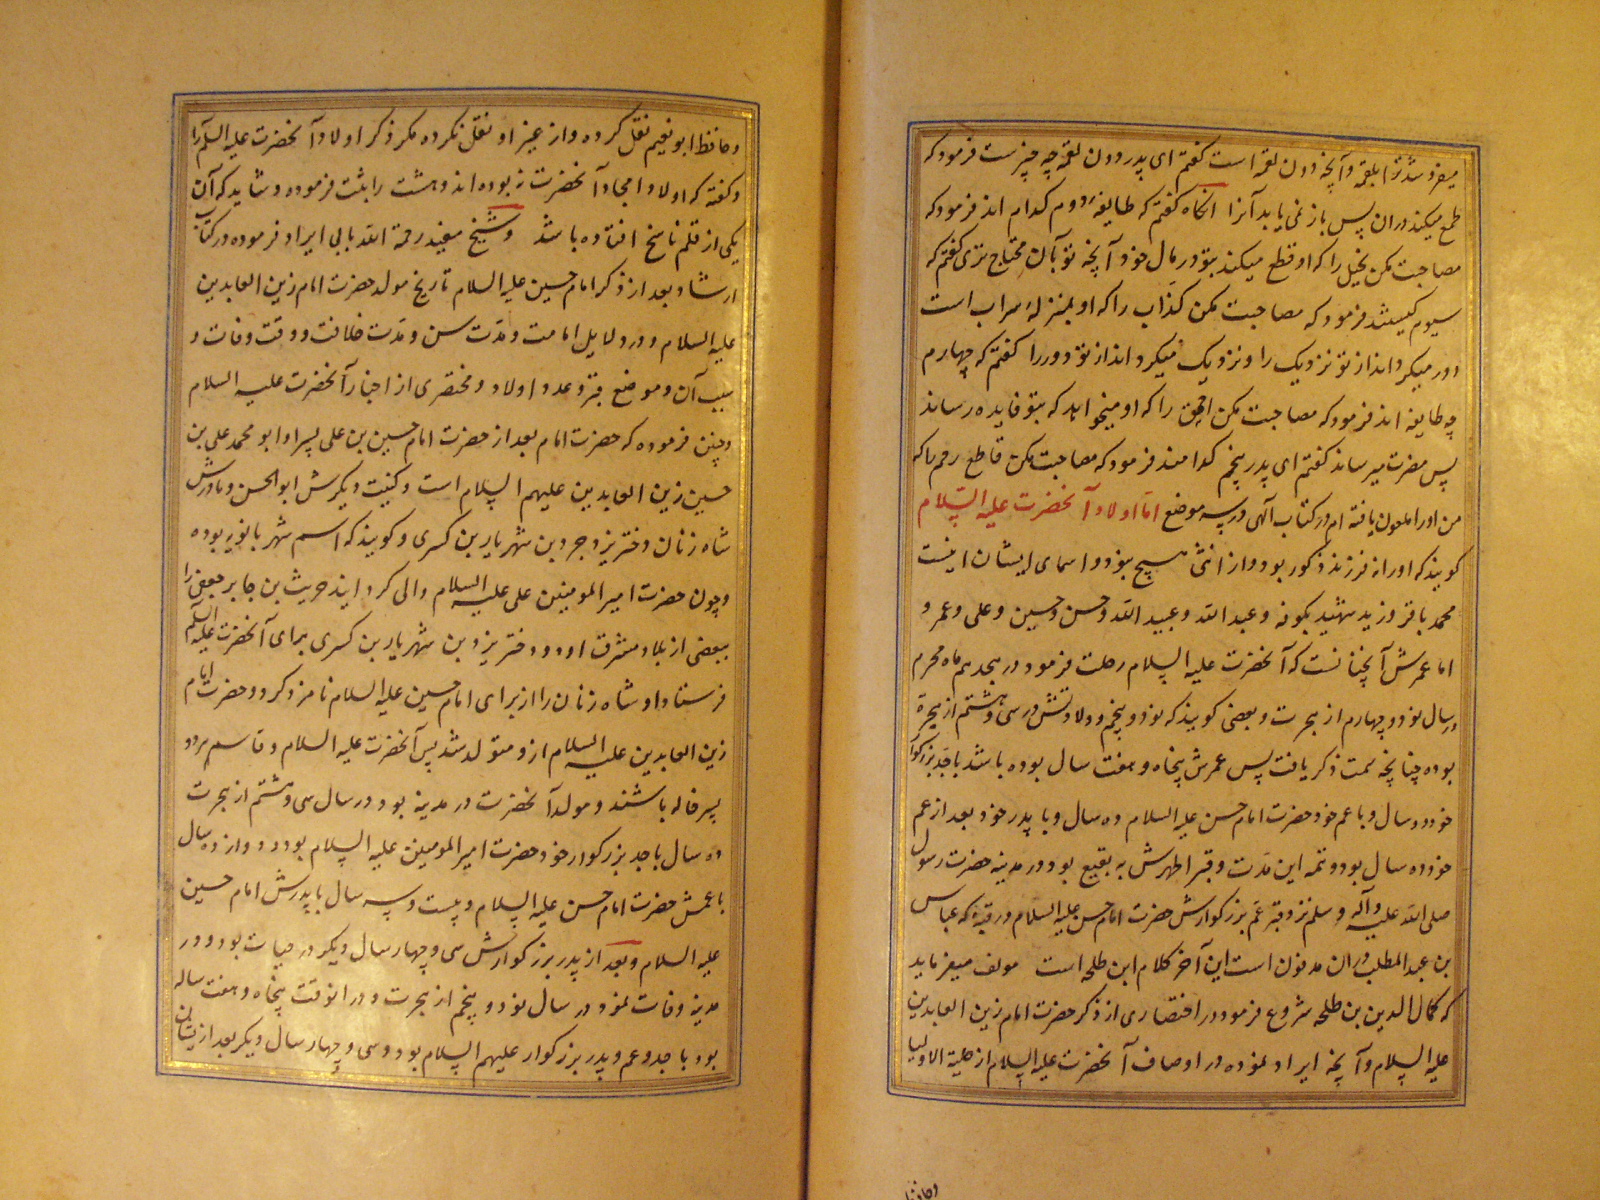 میفروشد ترا بلقمه و آنچه دون لقمه است کفتم ای پدر دون لقمه چه چیزست فرمود که
طمع میکند در ان پس باز نمی یابد آنرا انکاه کفتم که طایفهٔ دوم کدام اند فرمود که
مصاحبت مکن بخیل را که او قطع میکند بتو در مال خود آنچه تو بآن محتاج تری کفتم که
سیوم کیستند فرمود که مصاحبت مکن کذاب را که او بمنزلهٔ سراب است
دور میکرداند از تو نزدیک را و نزدیک میکرداند از تو دور را کفتم که چهارم
چه طایفه اند فرمود که مصاحبت مکن احمق را که او میخواهد که بتو فایده رساند
پس مضرت میرساند کفتم ای پدر پنجم کدامند فرمود که مصاحبت مکن قاطع رحم را که
من او را ملعون یافته ام در کتاب آلهی در سه موضع اما اولاد آنحضرت علیه السلام
کویند که او را نه فرزند ذکور بود و از انثی هیچ نبود و اسمای ایشان اینست
محمد باقر و زید شهید بکوفه و عبد الله و عبید الله و حسن و حسین و علی و عمر و
اما عمرش آنچنانست که آنحضرت علیه السلام رحلت فرمود در هجدهم ماه محرم
در سال نود و چهارم از هجرت و بعضی کویند که نود و پنجم و ولادتش در سی و هشتم از هجرة
بوده چنانچه سمت ذکر یافت پس عمرش پنجاه و هفت سال بوده باشد با جد بزرکوار
خود دو سال و با عم خود حضرت امام حسن علیه السلام ده سال و با پدر خود بعد از عم
خود ده سال بود و تتمه این مدت و قبر اطهرش به بقیع بود در مدینه حضرت رسول
صلی الله علیه و آله و سلم نزد قبر عم بزرکوارش حضرت امام حسن علیه السلام در قبهٔ که عباس
بن عبد المطلب در ان مدفون است این آخر کلام ابن طلحه است مولف میفرماید
که کمال الدین بن طلحه شروع فرمود در اختصاری از ذکر حضرت امام زین العابدین
علیه السلام و آنچه ایراد نموده در اوصاف آنحضرت علیه السلام از حلیة الاولیا
و حافظ
و حافظ ابو نعیم نقل کرده و از غیر او نقل نکرده مکر ذکر اولاد آنحضرت علیه السلام را
و کفته که اولاد امجاد آنحضرت نه بوده اند و هشت را ثبت فرموده و شاید که آن
یکی از قلم ناسخ افتاده باشد و شیخ مفید رحمة الله بابی ایراد فرموده در کتاب
ارشاد بعد از ذکر امام حسین علیه السلام تاریخ مولد حضرت امام زین العابدین
علیه السلام و در دلایل امامت و مدت سن و مدت خلافت و وقت وفات و
سبب آن و موضع قبر و عدد اولاد و مختصری از اخبار آنحضرت علیه السلام
و چنین فرموده که حضرت امام بعد از حضرت امام حسین بن علی پسر او ابو محمد علی بن
حسین زین العابدین علیهم السلام است و کنیت دیکرش ابو الحسن و مادرش
شاه زنان دختر یزدجرد بن شهریار بن کسری و کویند که اسم شهر بانویه بوده
و چون حضرت امیر المومنین علی علیه السلام والی کردانید حریث بن جابر جعفی را
ببعضی از بلاد مشرق او دو دختر یزد بن شهریار بن کسری برای آنحضرت علیه السلم
فرستاد او شاه زنان را از برای امام حسین علیه السلام نامزد کرد و حضرت امام
زین العابدین علیه السلام ازو متولد شد پس آنحضرت علیه السلام و قاسم هر دو
پسر خاله باشند و مولد آنحضرت در مدینه بود در سال سی و هشتم از هجرت
دو سال با جد بزرکوار خود حضرت امیر المومنین علیه السلام بود و دوازده سال
با عمش حضرت امام حسن علیه السلام و بیست و سه سال با پدرش امام حسین
علیه السلام و بعد از پدر بزرکوارش سی و چهار سال دیکر در حیات بود و در
مدینه وفات نمود در سال نود و پنجم از هجرت و در انوقت پنجاه و هفت ساله
بود با جد و عم و پدر بزرکوار علیهم السلام بود و سی و چهار سال دیکر بعد از ایشان